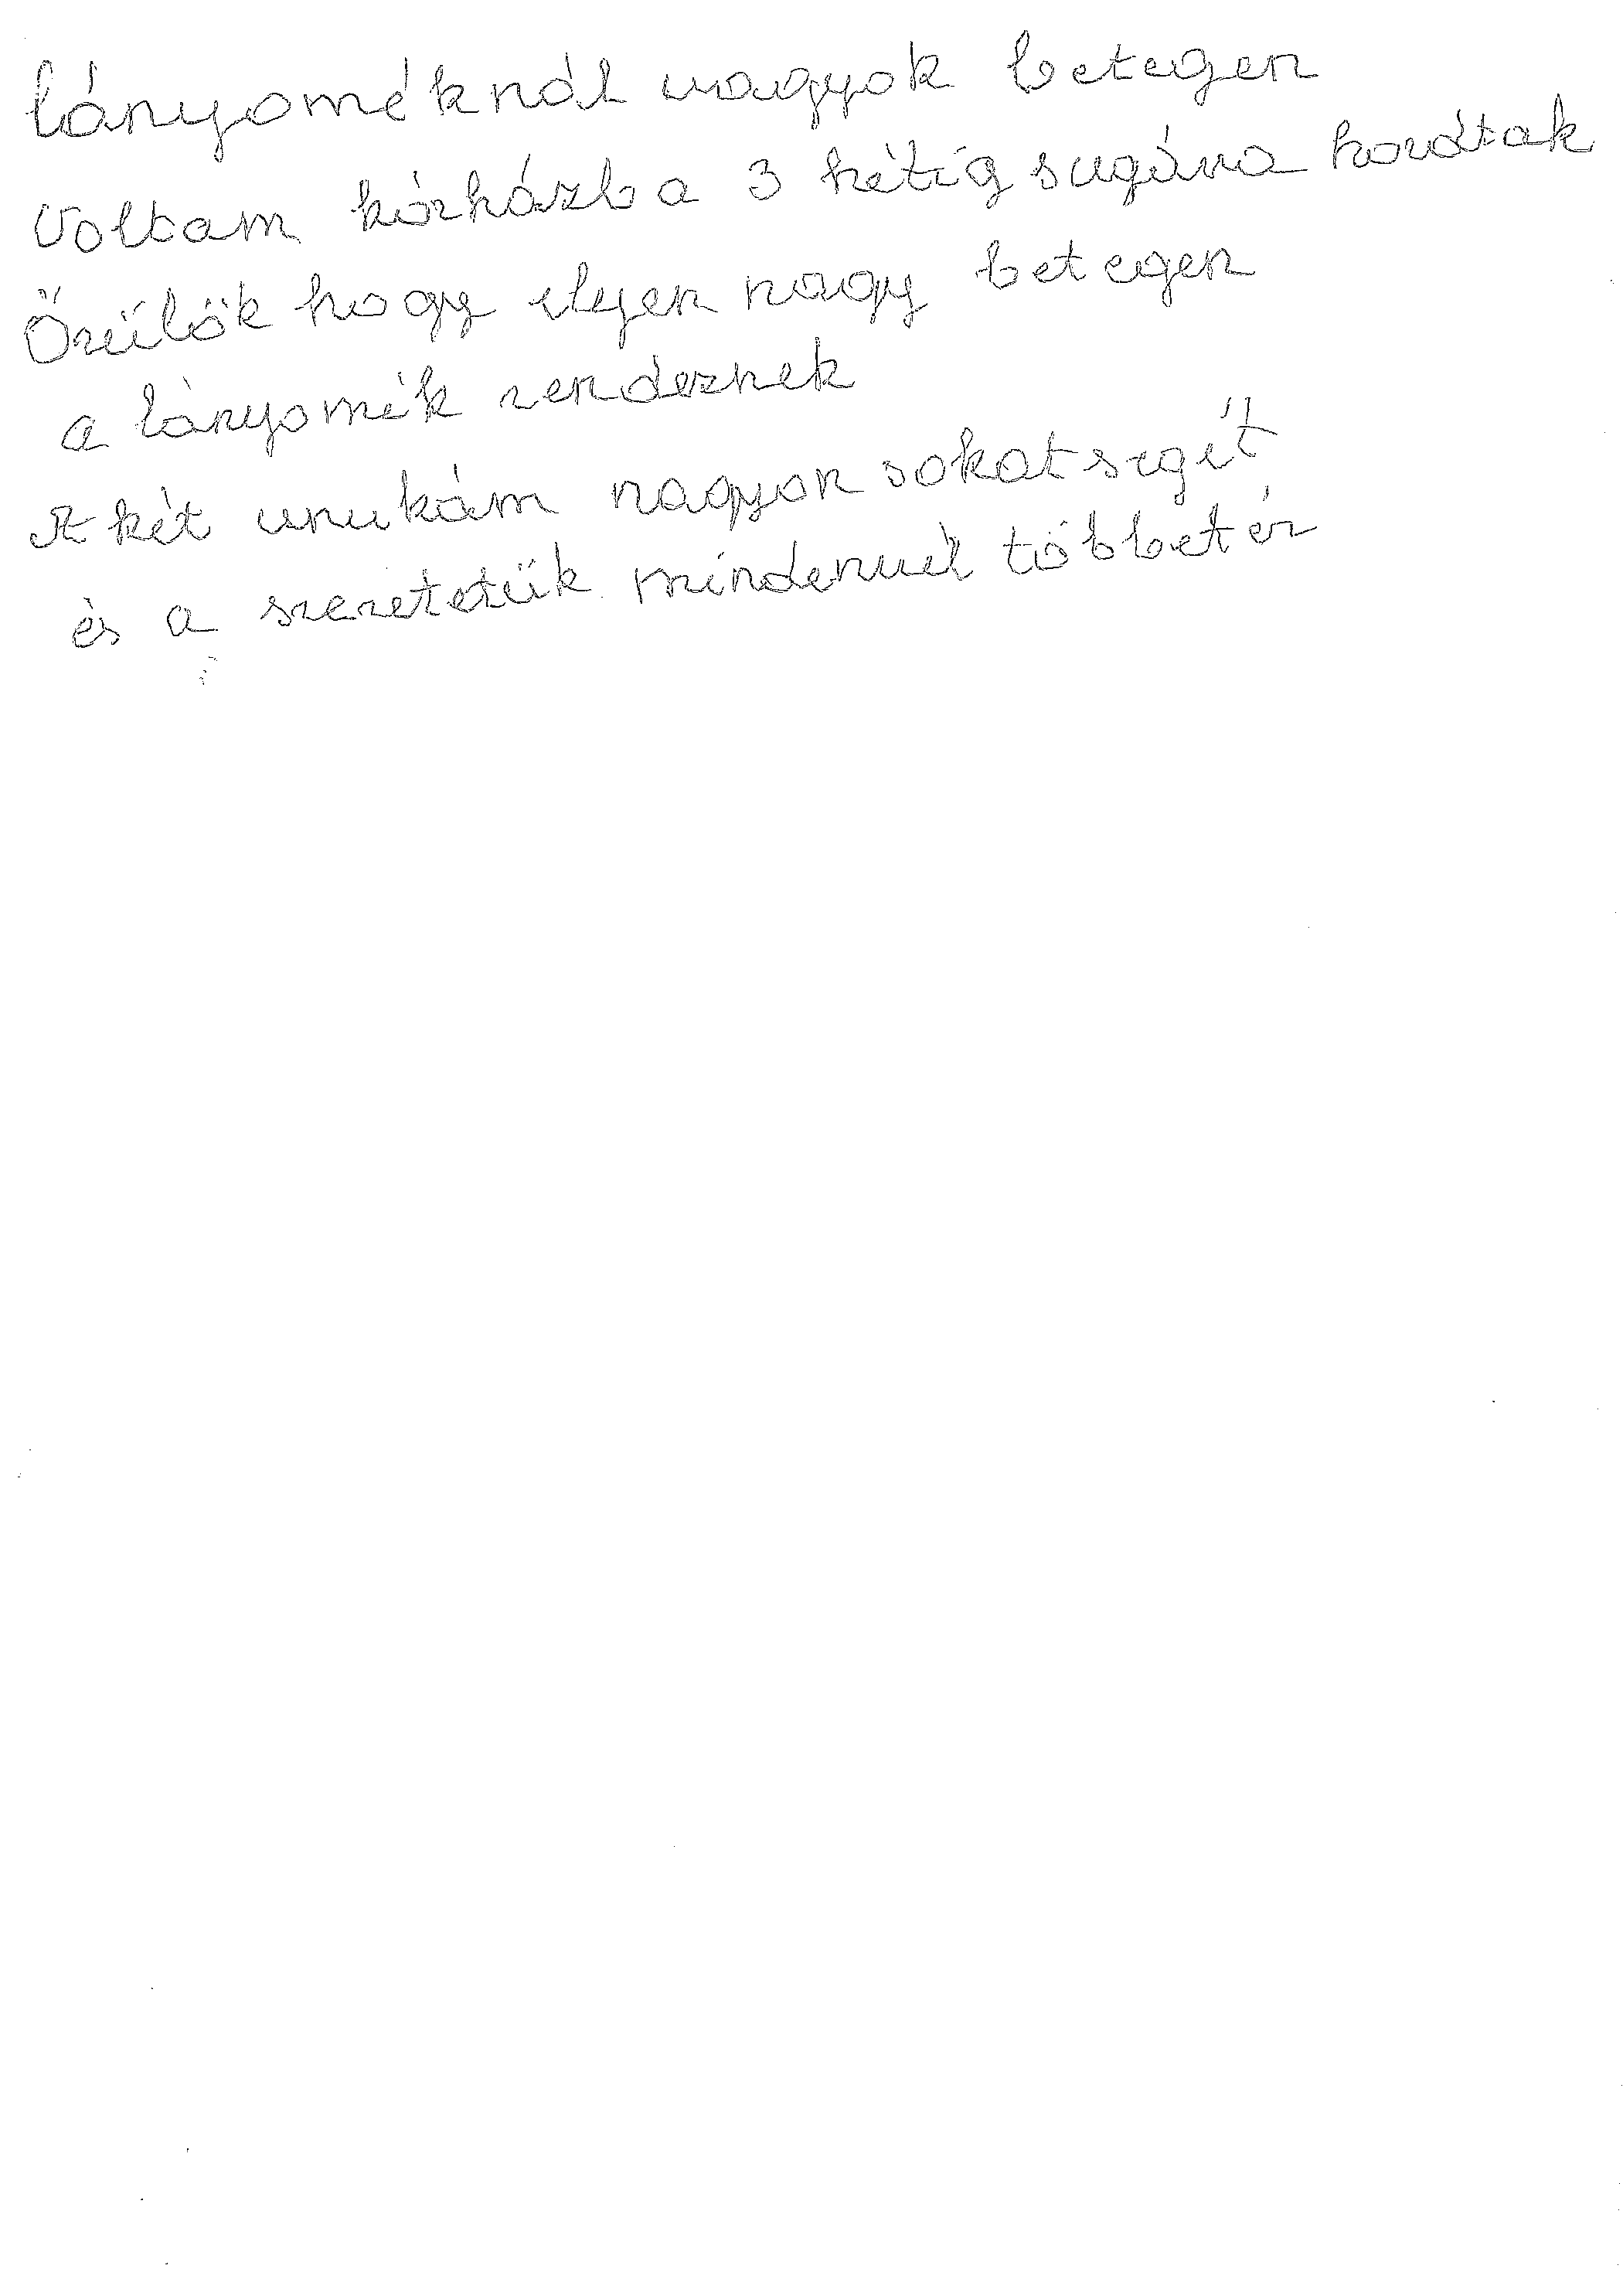 lányoméknál vagyok betegen
Voltam kórházba 3 hétig sugára hordtak
Örülök hogy ilyen nagy betegen
a lányomék rendeznek
A két unukám nagyon sokat segít
és a szeretetük mindenuél többet ér